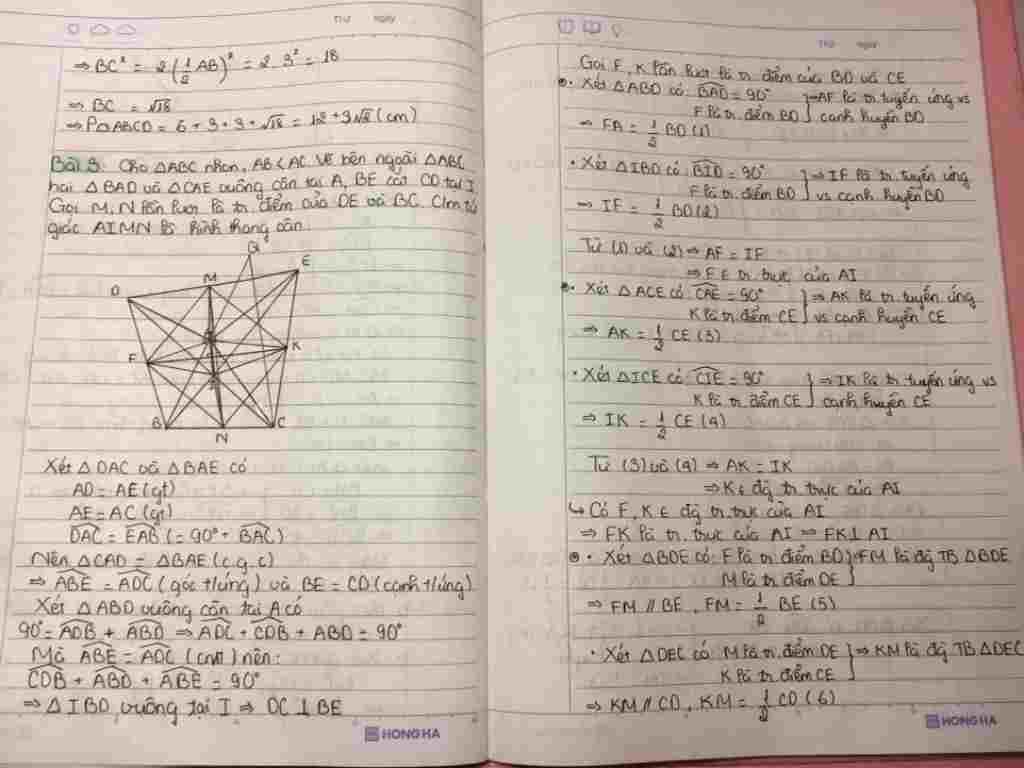 THỨ NGÀY
⇒ BC² = 2(1/2 AB)² = 2.3² = 18
⇒ BC = √18
⇒ P▱ABCD = 6 + 3 + 3 + √18 = 12 + 3√2 (cm)
Bài 3: Cho △ABC nhọn, AB < AC. Vẽ bên ngoài △ABC
hai △BAD và △CAE vuông cân tại A, BE cắt CD tại I.
Gọi M, N lần lượt là tr. điểm của DE và BC. Cm tứ
giác AIMN là hình thang cân.
Q
E
M
D
F
K
B
N
C
Xét △DAC và △BAE có
AD = AE (gt)
AE = AC (gt)
DAC = EAB (= 90° + BAC)
Nên △CAD = △BAE (c.g.c)
⇒ ABE = ADC (góc t/ứng) và BE = CD (cạnh t/ứng)
Xét △ABD vuông cân tại A có
90° = ADB + ABD ⇒ ADC + CDB + ABD = 90°
Mà ABE = ADC (cmt) nên:
CDB + ABD + ABE = 90°
⇒ △IBD vuông tại I ⇒ DC ⊥ BE
HONG HA
THỨ NGÀY
Gọi F, K lần lượt là tr. điểm của BD và CE
• Xét △ABD có BAD = 90° } ⇒ AF là tr. tuyến ứng vs
F là tr. điểm BD } cạnh huyền BD
⇒ FA = 1/2 BD (1)
• Xét △IBD có BID = 90° } ⇒ IF là tr. tuyến ứng
F là tr. điểm BD } vs cạnh huyền BD
⇒ IF = 1/2 BD (2)
Từ (1) và (2) ⇒ AF = IF
⇒ F ∈ tr. trực của AI
• Xét △ACE có CAE = 90° } ⇒ AK là tr. tuyến ứng
K là tr. điểm CE } vs cạnh huyền CE
⇒ AK = 1/2 CE (3)
• Xét △ICE có CIE = 90° } ⇒ IK là tr. tuyến ứng vs
K là tr. điểm CE } cạnh huyền CE
⇒ IK = 1/2 CE (4)
Từ (3) và (4) ⇒ AK = IK
⇒ K ∈ đg tr. trực của AI
↳ Có F, K ∈ đg tr. trực của AI
⇒ FK là tr. trực của AI ⇒ FK ⊥ AI
• Xét △BDE có: F là tr. điểm BD } FM là đg TB △BDE
M là tr. điểm DE }
⇒ FM // BE, FM = 1/2 BE (5)
• Xét △DEC có M là tr. điểm DE } ⇒ KM là đg TB △DEC
K là tr. điểm CE }
⇒ KM // CD, KM = 1/2 CD (6)
HONG HA